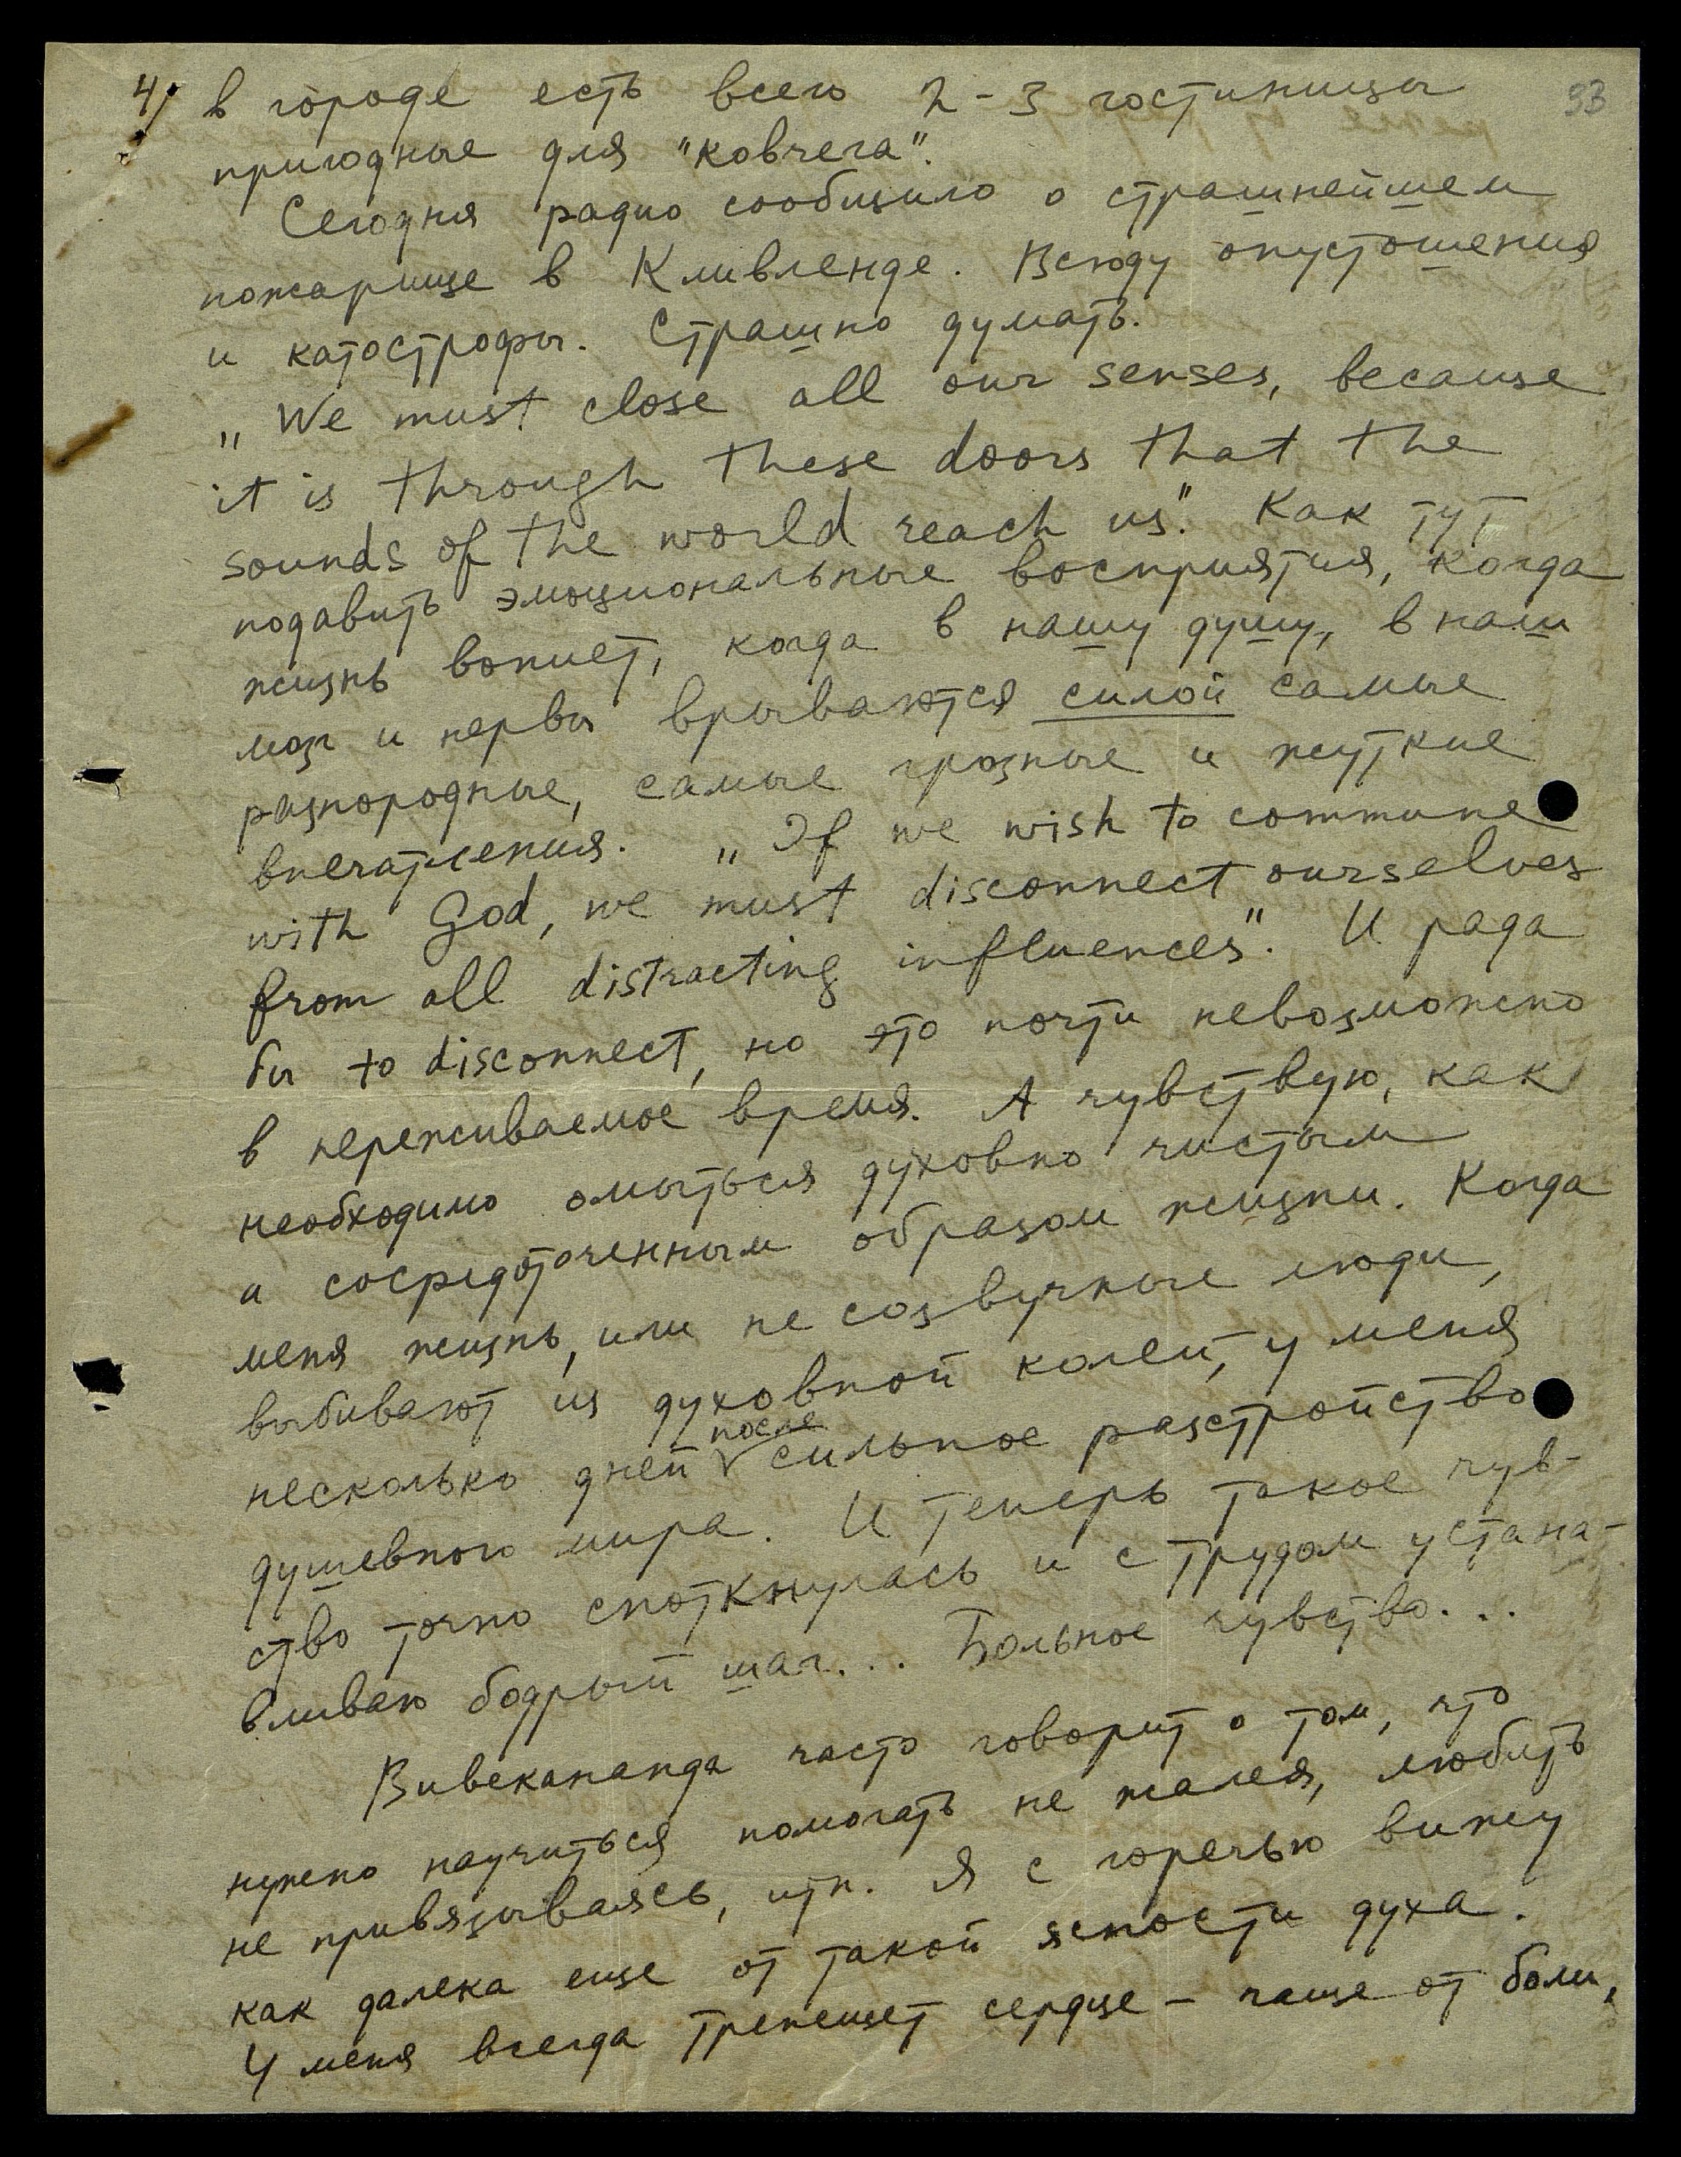 4/ в городе есть всего 2-3 гостиницы 93
пригодные для "ковчега".
Сегодня радио сообщило о страшнейшем
пожарище в Кливленде. Всюду опустошения
и катострофы. Страшно думать.
„We must close all our senses, because
it is through these doors that the
sounds of the world reach us". Как тут
подавить эмоциональные восприятия, когда
жизнь вопиет, когда в нашу душу, в наш
мозг и нервы врываются силой самые
разнородные, самые грозные и жуткие
впечатления. „If we wish to commune
with God, we must disconnect ourselves
from all distracting influences". И рада
бы to disconnect, но это почти невозможно
в переживаемое время. А чувствую, как
необходимо омыться духовно чистым
и сосредоточенным образом жизни. Когда
меня жизнь, или не созвучные люди,
выбивают из духовной колеи, у меня
после
несколько дней сильное разстройство
душевного мира. И теперь такое чув-
ство точно споткнулась и с трудом устана-
вливаю бодрый шаг... Больное чувство...
Вивекананда часто говорит о том, что
нужно научиться помогать не жалея, любить
не привязываясь, итп. Я с горечью вижу
как далека еще от такой ясности духа.
У меня всегда трепещет сердце – чаще от боли,